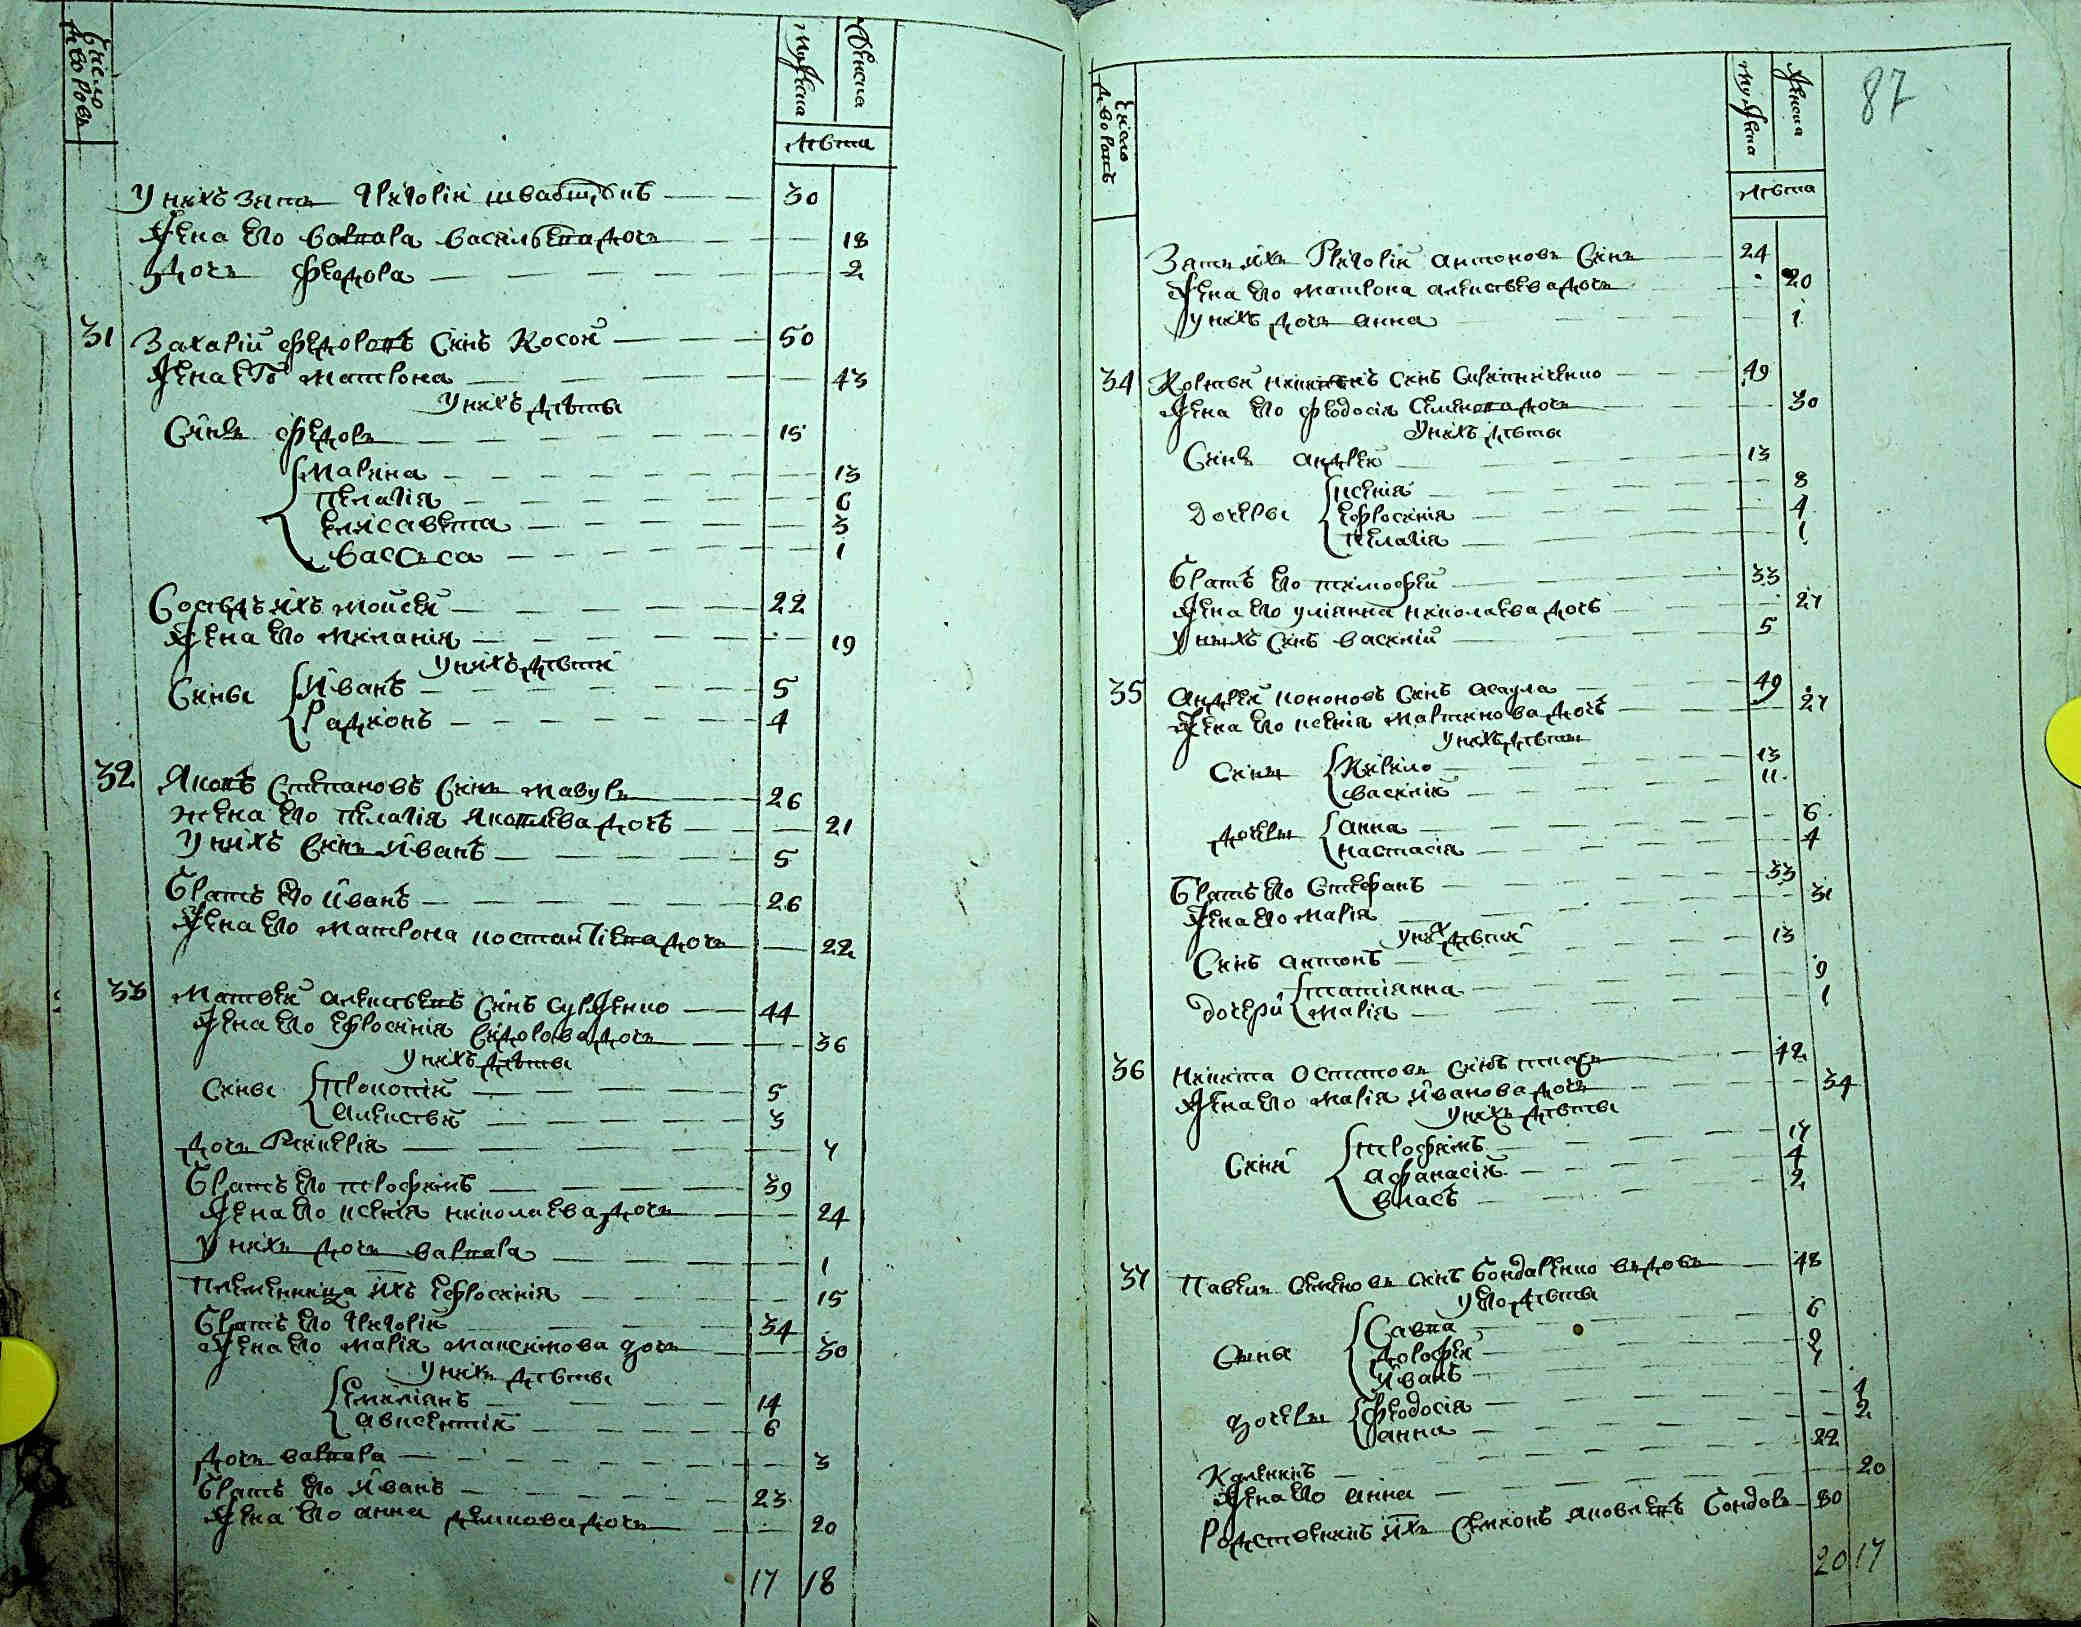 Число дворовъ
Мужеска
Женска
Лѣта
У нихъ зять Григорій 30
Жена его Варвара Васильева дочь 18
дочь Федора 2
31 Захарій Федоровъ Синъ Косой 50
Жена его Матрона 43
У нихъ дѣты
Синъ Федоръ 15
Марина 13
Пелагія 6
Елисавета 3
Васса 1
Сосѣдъ ихъ Мойсей 22
Жена его Меланія 19
У нихъ дѣти
Сины Иванъ 5
Радионъ 4
32 Яковъ Степановъ Синъ Мазуръ 26
Жена его Пелагія Яковлева дочь 21
У нихъ Синъ Иванъ 5
Братъ его Иванъ 26
Жена его Матрона дочь 22
33 Матвей Алексѣевъ Синъ Сурженко 44
Жена его Ефросинія Сидорова дочь 36
У нихъ дѣты
Сины Прокопій 5
Алексѣй 3
дочь Гликерія 7
Братъ его Трофимъ 39
Жена его Ксенія Николаева дочь 24
У нихъ дочь Варвара 1
Племенница ихъ Ефросинія 15
Братъ его Григорій 34
Жена его Марія Максимова дочь 30
У нихъ дѣты
Емиліанъ 14
Авксентій 6
дочь Варвара 3
Братъ его Иванъ 23
Жена его Анна Демкова дочь 20
17 18
87
Число дворовъ
Мужеска
Женска
Лѣта
Зять ихъ Григорій Антоновъ Синъ 24
Жена его Матрона Алексѣева дочь 20
У нихъ дочь Анна 1
34 Корнѣй Синъ 49
Жена его Феодосія дочь 30
У нихъ дѣты
Синъ Андрей 13
Дочеры Ксенія 8
Ефросинія 4
Пелагія 1
Братъ его Тимофей 33
Жена его Уліянна Николаева дочь 27
У нихъ Синъ Василій 5
35 Андрей Кононовъ Синъ Асаула 49
Жена его Ксенія Мартинова дочь 27
У нихъ дѣты
Сины Кирило 13
Василій 11
дочеры Анна 6
Настасія 4
Братъ его Стефанъ 33
Жена его Марія 31
У нихъ дѣти
Синъ Антонъ 13
Дочери Татіанна 9
Марія 1
36 Никита Остаповъ Синъ Ткачъ 42
Жена его Марія Иванова дочь 34
У нихъ дѣты
Сини Трофимъ 17
Афанасій 4
Власъ 2
37 Павелъ Синъ Бондаренко вдовъ 48
У его дѣты
Сины Савка 6
Дорофей 2
Иванъ 1
дочеры Феодосія 4
Анна 2
Калѣникъ 22
Жена его Анна 20
Родственикъ ихъ Симионъ Яковлевъ Бондаръ 30
20 17